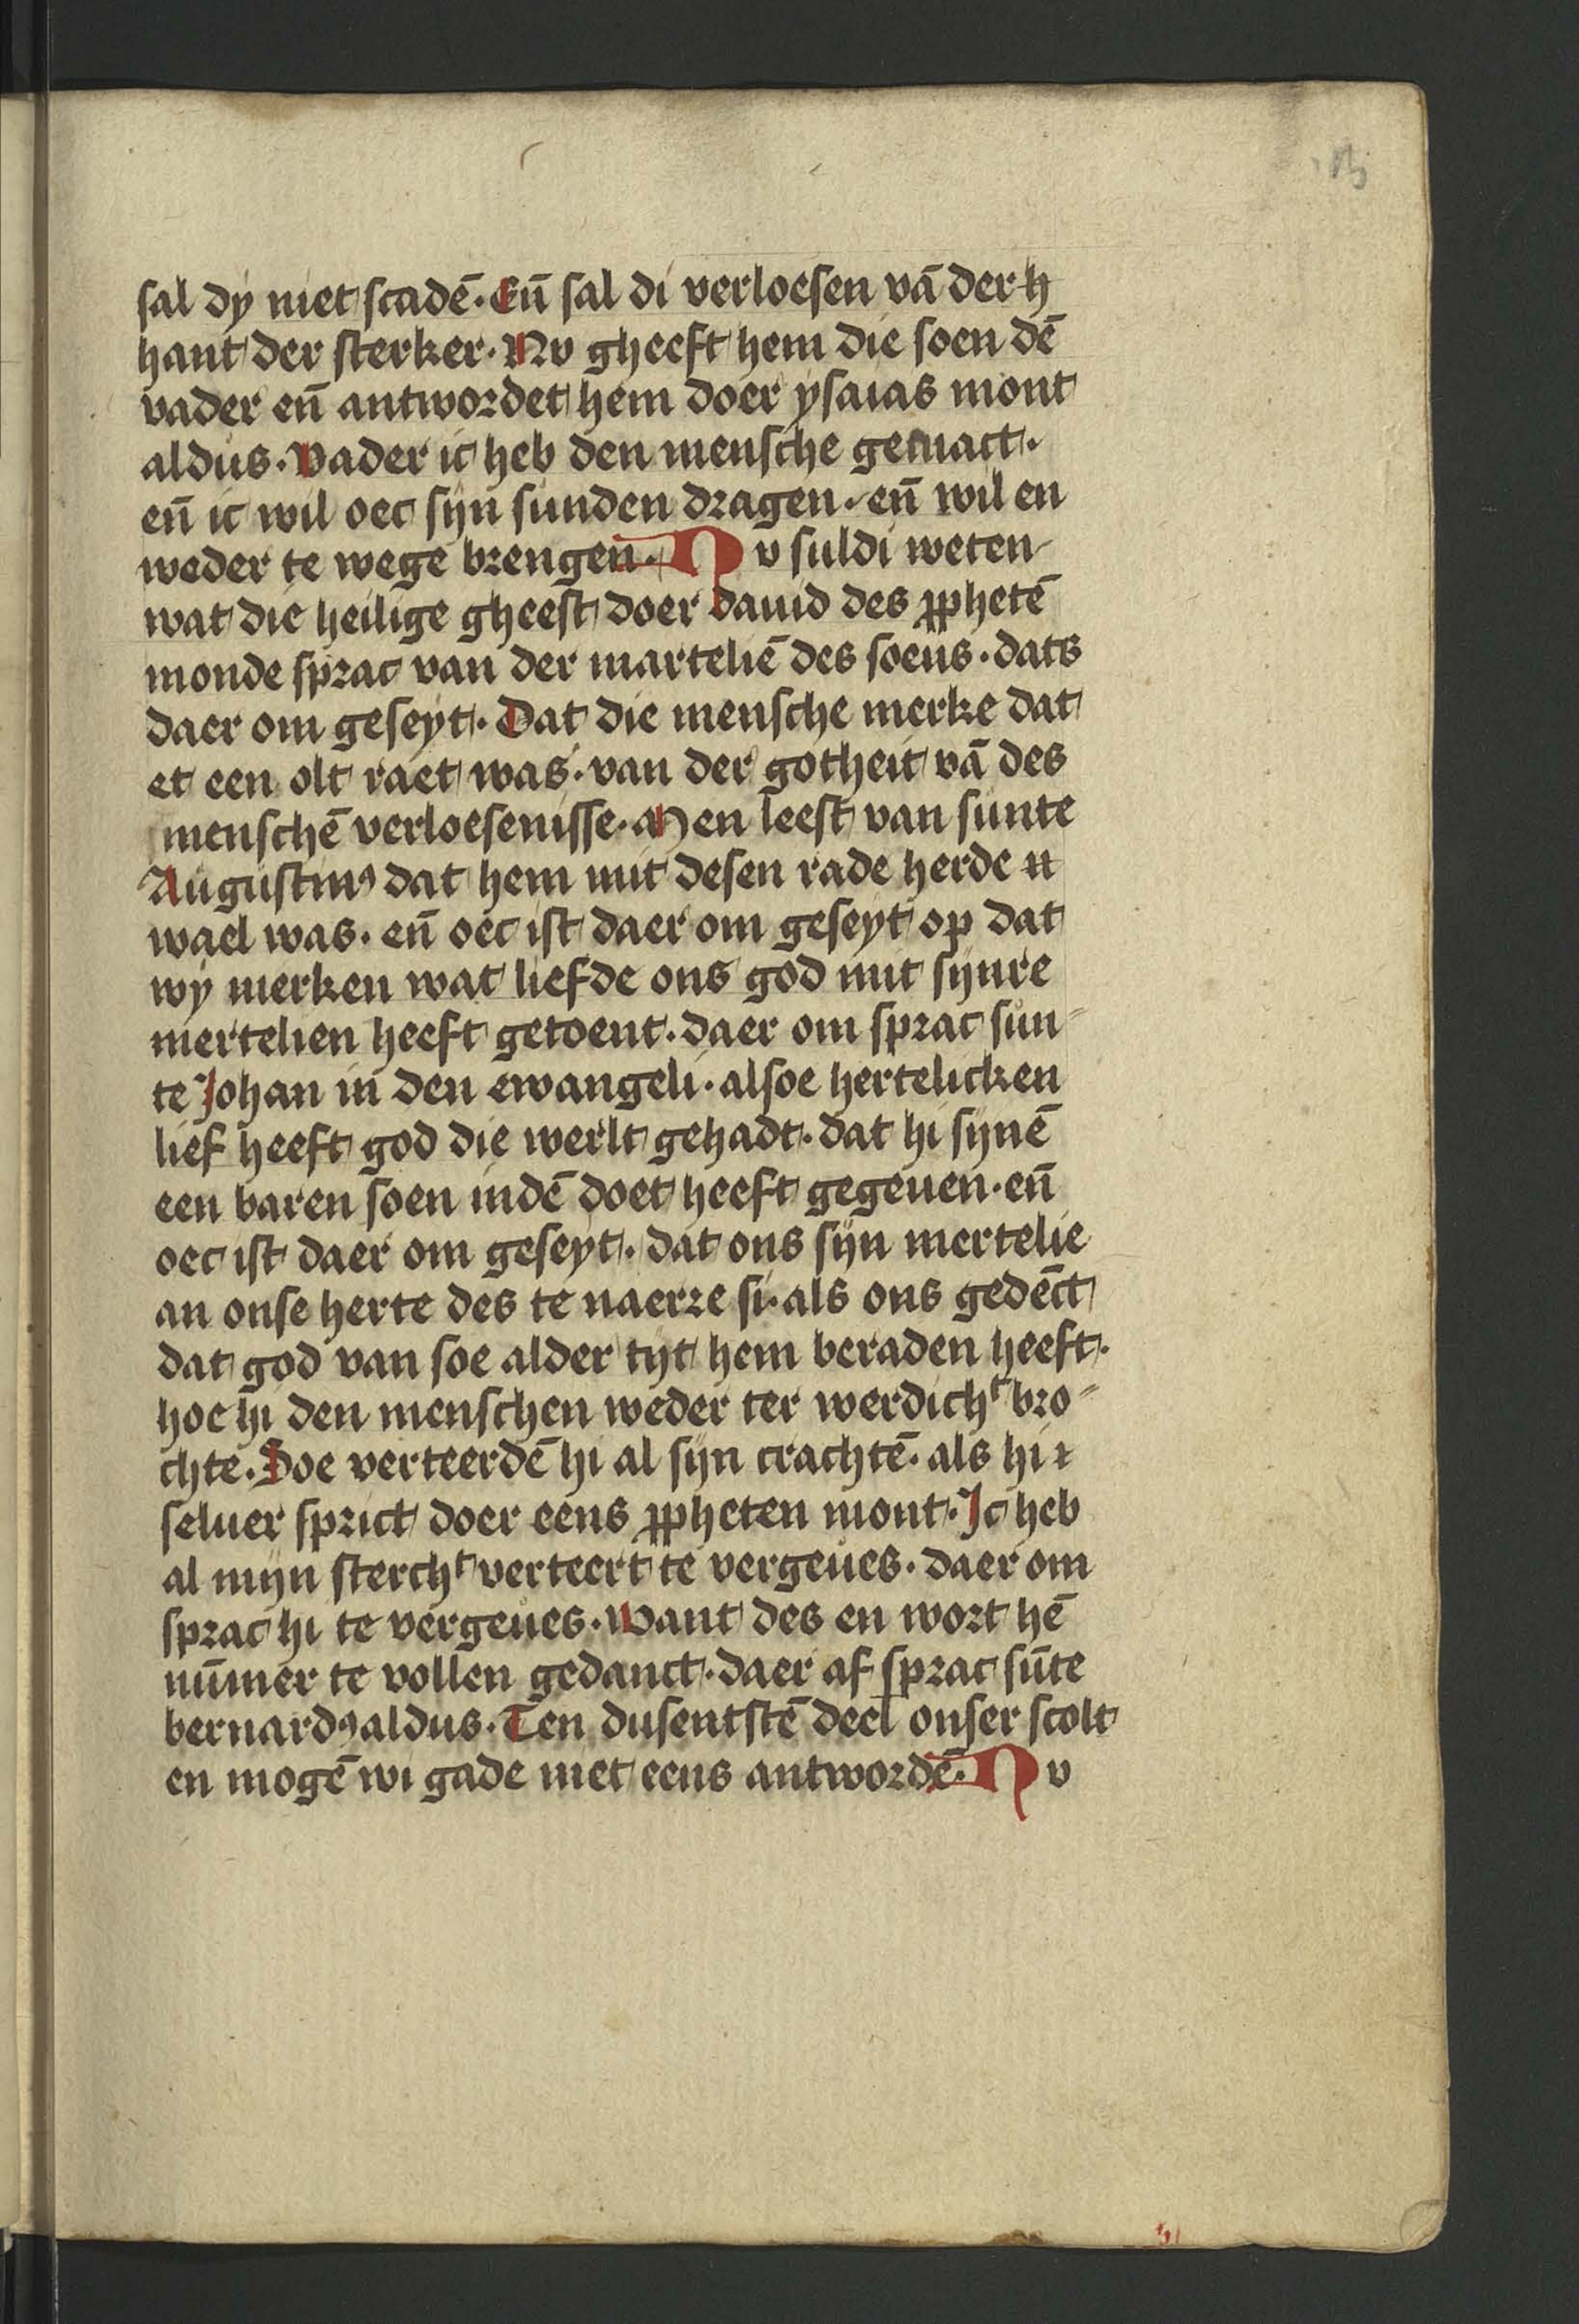 sal dy niet scadē. Eñ sal di verloesen vā der h
hant der sterker. Nv gheeft hem die soen dē
vader eñ antwordet hem doer ysaias mont
aldus. Vader ic heb den mensche gemact.
eñ ic wil oec syn sunden dragen. eñ wil en
weder te wege brengen. Nv suldi weten
wat die heilige gheest doer dauid des ꝓphetē
monde sprac van der marteliē des soens. dats
daer om geseyt. Dat die mensche merke dat
et een olt raet was. van der gotheit vā des
menschē verloesenisse. Men leest van sunte
Augustinꝰ dat hem mit desen rade herde n
wael was. eñ oec ist daer om geseyt op dat
wy merken wat liefde ons god mit synre
mertelien heeft getoent. daer om sprac sun-
te Johan in den ewangeli. alsoe hertelicken
lief heeft god die werlt gehadt. dat hi synē
een baren soen indē doet heeft gegeuen. eñ
oec ist daer om geseyt. dat ons syn mertelie
an onse herte des te naerre si. als ons gedēct
dat god van soe alder tyt hem beraden heeft.
hoe hi den menschen weder ter werdichᵗ bro-
chte. Doe verteerdē hi al syn crachtē. als hi
seluer sprict doer eens ꝓpheten mont. Ic heb
al myn sterchᵗ verteert te vergeues. daer om
sprac hi te vergeues. Want des en wort hē
nūmer te vollen gedanct. daer af sprac sūte
bernardꝰ aldus. Ten dusentstē deel onser scolt
en mogē wi gade niet eens antwordē. Nv